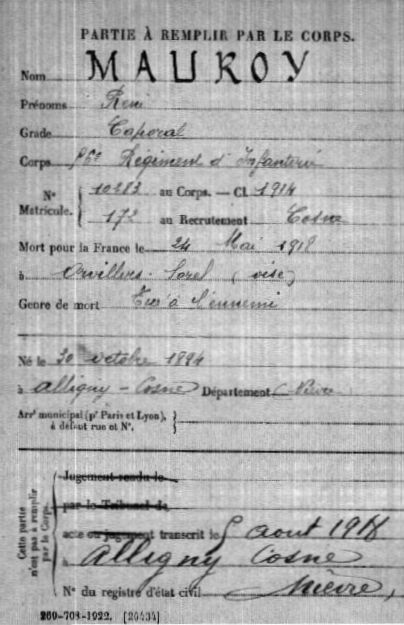 PARTIE À REMPLIR PAR LE CORPS.
Nom MAUROY
Prénoms René
Grade Caporal
Corps Régiment d'Infanterie
N° Matricule. 10283 au Corps. — Cl. 1914
172 au Recrutement Cosne
Mort pour la France le 24 Mai 1918
à Orvillers-Sorel (oise)
Genre de mort Tué à l'ennemi
Né le 30 octobre 1894
à Alligny-Cosne Département (Nièvre
Arrt municipal (pr Paris et Lyon), à défaut rue et N°.
Cette partie n'est pas à remplir par le Corps.
Jugement rendu le
par le Tribunal de
acte ou jugement transcrit le 5 aout 1918
à Alligny Cosne
N° du registre d'état civil Nièvre,
260-708-1922. [26434]